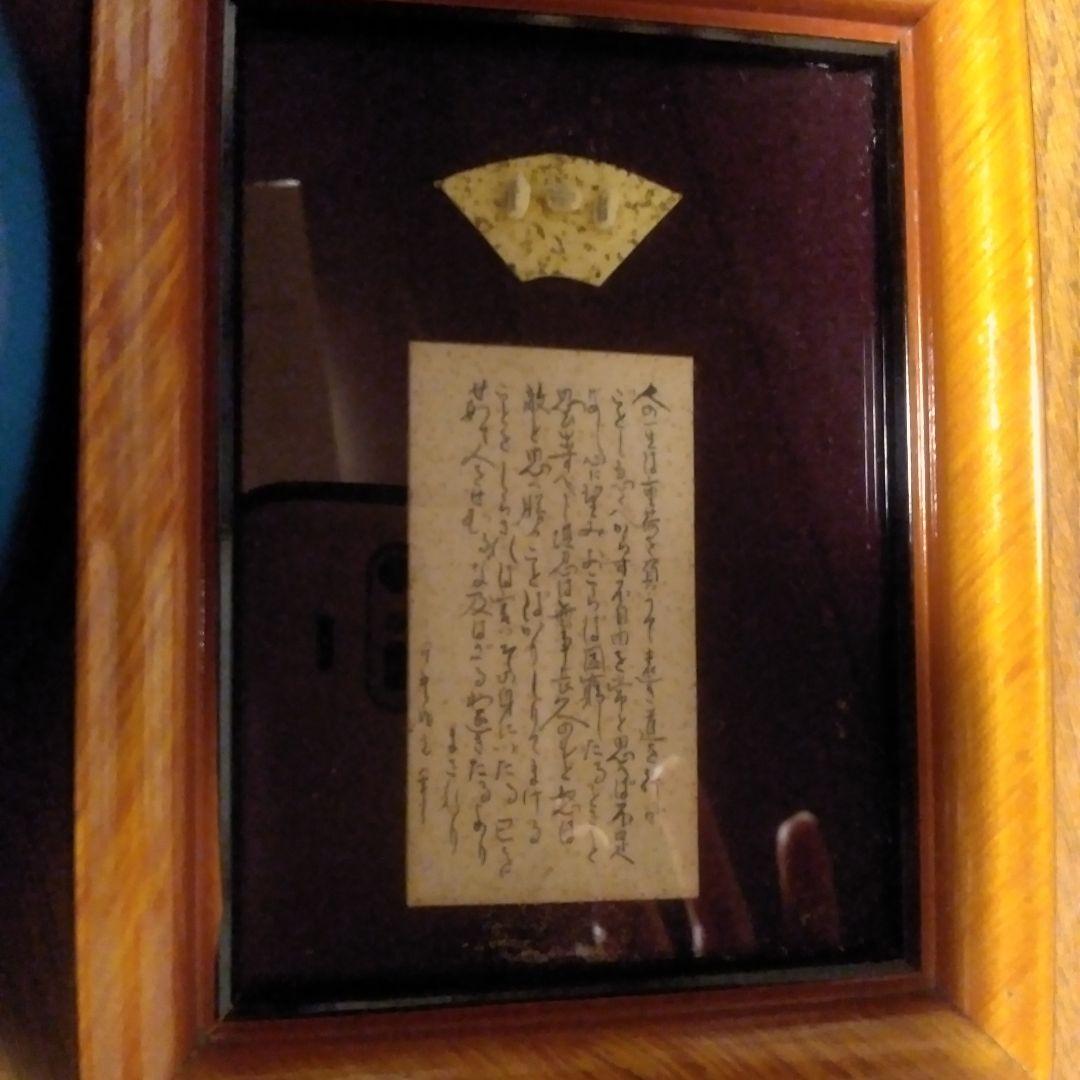 人の一生は重荷を負うて遠き道を行が
ごとしいそぐべからず不自由を常と思へば不足
なし心に望みおこらば困窮したるときを
思ひ出すべし堪忍は無事長久のもと怒は
敵と思へ勝ことばかりしりてまける
ことをしらざれば害その身にいたる己を
せめて人をせむるな及ばざるは過ぎたるより
まされり